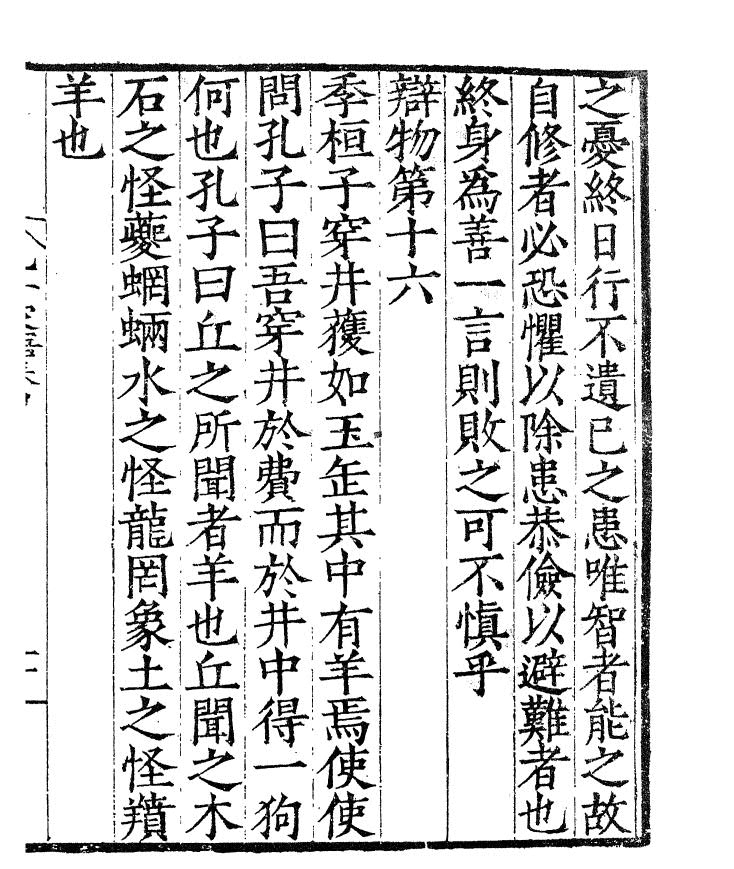 之憂終日行不遺己之患唯智者能之故
自修者必恐懼以除患恭儉以避難者也
終身為善一言則敗之可不慎乎
辯物第十六
季桓子穿井獲如玉缶其中有羊焉使使
問孔子曰吾穿井於費而於井中得一狗
何也孔子曰丘之所聞者羊也丘聞之木
石之怪夔蝄蜽水之怪龍罔象土之怪羵
羊也